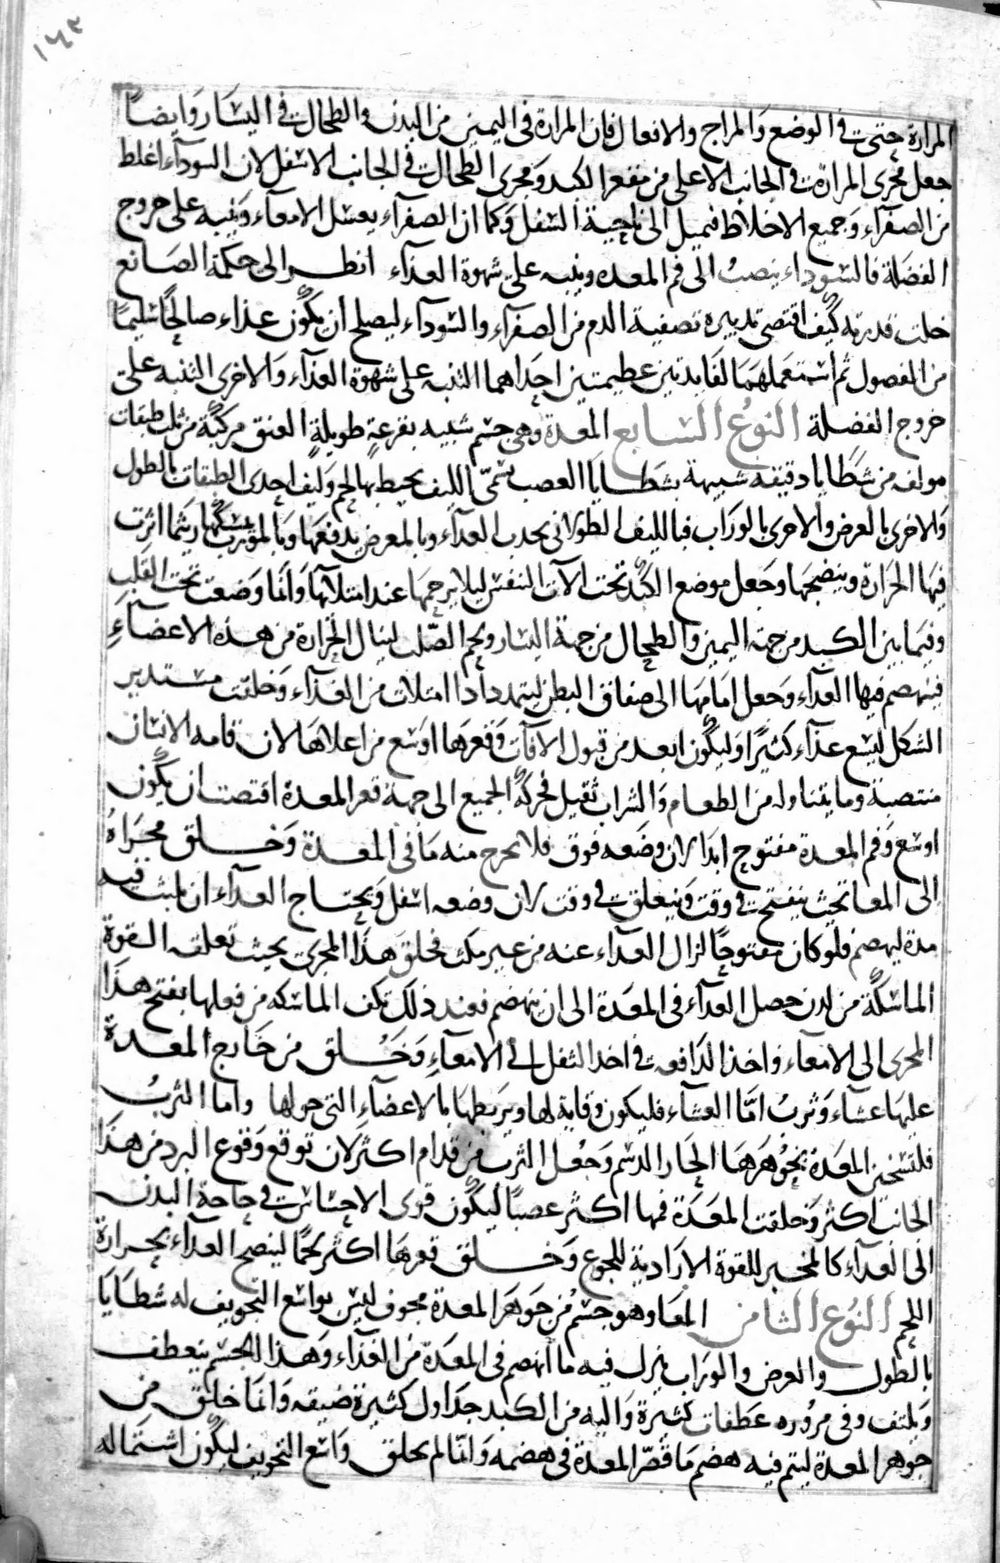 ١٤٢
المرارة حتى في الوضع والمزاج والافعال فان المرارة في اليمين من البدن والطحال في اليسار وايضا
جعل مجرى المرارة في الجانب الاعلى من مقعر الكبد ومجرى الطحال في الجانب الاسفل لان السودآء اغلط
من الصفرآء وجميع الاخلاط فتميل الى ناحية السفل وكما ان الصفرآء يغسل الامعاء وينبه على خروج
الفضلة فالسوداء ينصب الى فم المعده وينبه على شهوة الغذآء انظر الى حكمة الصانع
جلت قدرته كيف اقتضى تدبيره تصفية الدم من الصفرآء والسودآء ليصلح ان يكون غذاء صالحا سليما
من الفضول ثم استعملهما لفايدتين عظيمتين احداهما التنبه على شهوة الغذآء والاخرى التنبه على
خروج الفضلة النوع السابع المعدة وهي جسم شبيه بقرعة طويلة العنق مركبة من ثلث طبقات
مولفه من شظايا دقيقه شبيهة بشظايا العصب تسمى الليف يحيط بها لحم وليف احدى الطبقات بالطول
والاخرى بالعرض والاخرى بالوراب فبالليف الطولاني يجذب الغدآء وبالمعرض يدفعها وبالمورب يمسكها ريثما اثرت
فيها الحرارة وينضجها وجعل موضع الكبد تحت الآت النفس ليلا يزحمها عند امتلائها وانما وضعت تحت القلب
وفيما بين الكبد من جهة اليمين والطحال من جهة اليسار ولحم الصلب لينال الحرارة من هذه الاعضآء
فينهضم فيها الغدآء وجعل امامها الى صفاق البطن ليتمدد اذا امتلات من الغدآء وخلقت مستدير
الشكل ليسع غذآء كثيرا وليكون ابعد من قبول الافات وقعرها اوسع من اعلاها لان قامه الانسان
منتصبة وما يتناوله من الطعام والشراب ثقيل فحركة الجميع الى جهة قعر المعدة اقتضت ان يكون
اوسع وفم المعدة مفتوح ابدا لان وضعه فوق فلا يخرج منه ما في المعدة وخلق مجراه
الى المعا بحيث ينفتح في وقت وينغلق في وقت لان وضعه اسفل ويحتاج الغدآء ان يلبث فيه
مدة ليهضم فلو كان مفتوحا لزال الغدآء عنه من غير مكث فخلق هذا المجرى بحيث تعلقه القوة
الماسكة من لدن حصل الغدآء في المعدة الى ان ينهضم فعند ذلك تكف الماسكه من فعلها بفتح هذا
المجرى الى الامعاء واخذ الدافعه في اخذ الثفل الى الامعآء وخلق من خارج المعدة
عليها غشاء وثرب اما الغشآء فليكون وقاية لها ويربطها بالاعضآء التي حولها واما الثرب
فلتسخن المعدة بجوهرها الحار الدسم وجعل الثرب من قدام اكثر لان توقع وقوع البرد من هذا
الجانب اكثر وخلقت المعدة فمها اكثر عصبا ليكون قوى الاحساس في حاجة البدن
الى الغدآء كالمخبر للقوة الارادية للجوع وخلق قعرها اكثر لحما لينضج الغدآء بحرارة
اللحم النوع الثامن المعا وهو جسم من جوهر المعدة مجوف ليس بواسع التجويف له شظايا
بالطول والعرض والوراب ينزل فيه ما انهضم في المعدة من الغذآء وهذا الجسم ينعطف
ويلتف وفي مروره عطفات كثيرة واليه من الكبد جداول كثيرة ضيقه وانما خلق من
جوهر المعدة ليتم فيه هضم ما قصر المعدة في هضمه وانما لم يخلق واسع التجويف ليكون اشتماله